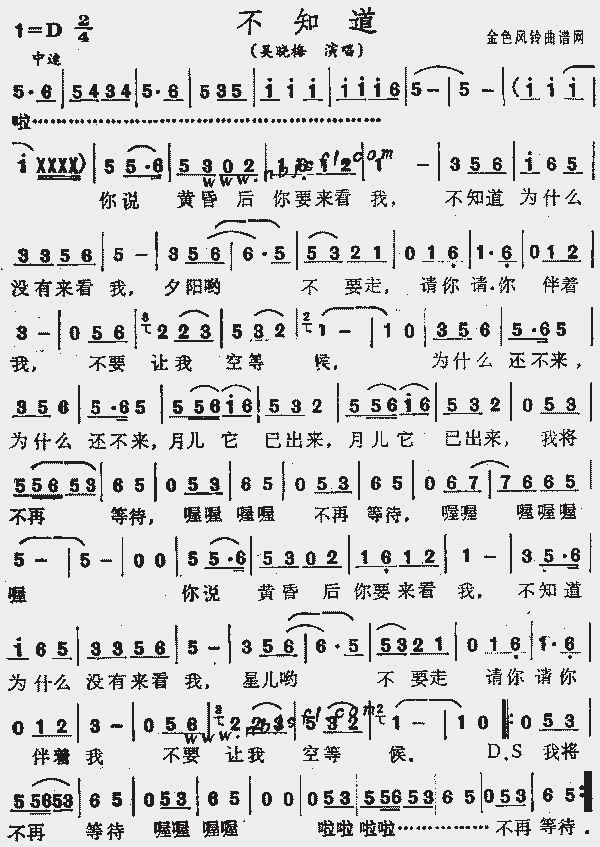 不知道
1=D 2/4
(吴晓梅 演唱)
金色风铃曲谱网
中速
5·6 | 5 4 3 4 | 5·6 | 5 3 5 | i i i | i i i 6 | 5 - | 5 - | (i i i |
啦
i XXXX) | 5 5·6 | 5 3 0 2 | 1 6 1 2 | 1 - | 3 5 6 | i 6 5 |
你说 黄昏 后 你要来看 我, 不知道 为什么
3 3 5 6 | 5 - | 3 5 6 | 6·5 | 5 3 2 1 | 0 1 6 | 1·6 | 0 1 2 |
没有来看 我, 夕阳哟 不 要走, 请你 请·你 伴着
3 - | 0 5 6 | 2 2 3 | 5 3 2 | 1 - | 1 0 | 3 5 6 | 5·6 5 |
我, 不要 让我 空等 候, 为什么 还不来,
3 5 6 | 5·6 5 | 5 5 6 i 6 | 5 3 2 | 5 5 6 i 6 | 5 3 2 | 0 5 3 |
为什么 还不来, 月儿 它 已出来, 月儿 它 已出来, 我将
5 5 6 5 3 | 6 5 | 0 5 3 | 5 3 | 0 5 3 | 6 5 | 0 6 7 | 7 6 6 5 |
不再 等待, 喔喔 喔喔 不再 等待, 喔喔 喔喔喔
5 - | 5 - | 0 0 | 5 5·6 | 5 3 0 2 | 1 6 1 2 | 1 - | 3 5·6 |
喔 你说 黄昏 后 你要来看 我, 不知道
i 6 5 | 3 3 5 6 | 5 - | 3 5 6 | 6·5 | 5 3 2 1 | 0 1 6 | 1·6 |
为什么 没有来看 我, 星儿哟 不 要走 请你 请你
0 1 2 | 3 - | 0 5 6 | 2 2 3 | 5 3 2 | 1 - | 1 0 | 0 5 3 |
www.nbsfl.com
伴着 我 不要 让我 空等 候。 D.S 我将
5 5 6 5 3 | 6 5 | 0 5 3 | 5 3 | 6 5 | 0 0 | 0 5 3 | 5 5 6 5 3 | 0 5 3 | 6 5
不再 等待 喔喔 喔喔 啦啦 啦啦 不再 等待.